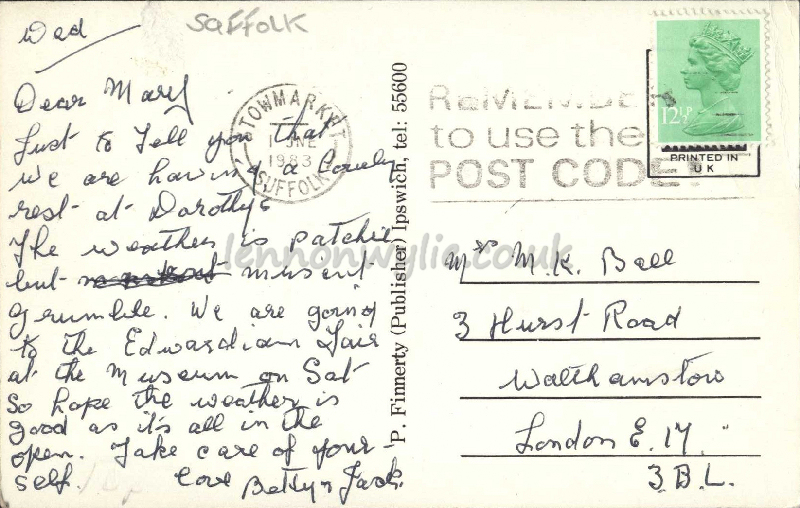 Suffolk
Wed
Dear Mary
Just to tell you that
we are having a lovely
rest at Dorothy's
The weather is patchie
but musent
grumble. We are going
to the Edwardian Fair
at the Museum on Sat
So hope the weather is
good as it's all in the
open. Take care of your-
self. Love Betty & Jack.
STOWMARKET
1 JNE
1983
SUFFOLK
REMEMBER
to use the
POST CODE
12½P
PRINTED IN
U K
P. Finnerty (Publisher) Ipswich, tel: 55600
Mrs M.K. Ball
3 Hurst Road
Walthamstow
London E.17.
3.B.L.
lennonwylie.co.uk